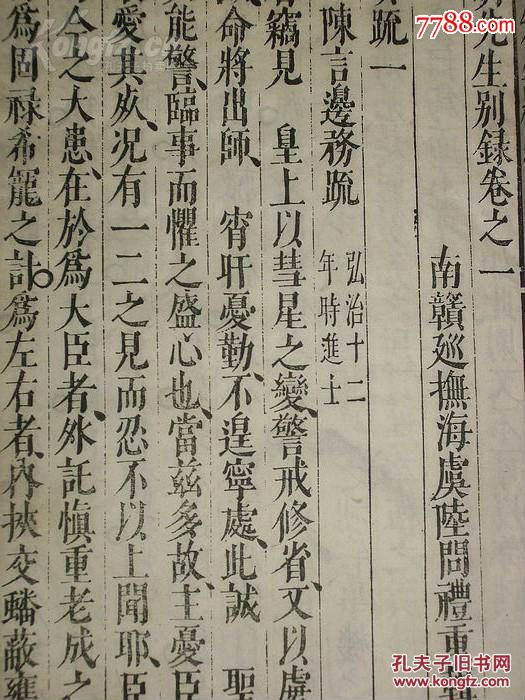 先生別録卷之一
南贛廵撫海虞陸問禮重
疏一
陳言邊務疏 弘治十二年時進士
竊見 皇上以彗星之變警戒修省又以虜
命將出師 宵旰憂勤不遑寧處此誠 聖
能警臨事而懼之盛心也當兹多故主憂臣
愛其死况有一二之見而忍不以上聞耶臣
今之大患在於爲大臣者外託愼重老成之
爲固祿希寵之計爲左右者內挾交蟠蔽壅
7788.com
孔夫子旧书网
KONGFZ.COM